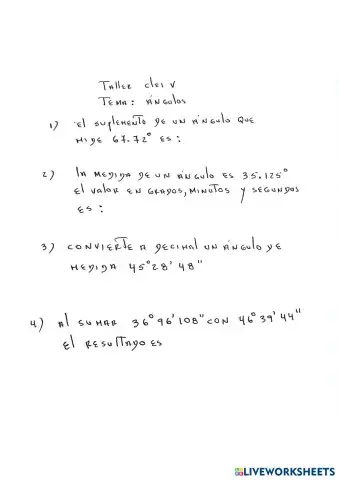 Taller clei V
TEMA: ÁNGulos
1) El suplemento DE UN ÁNGulo QUE
MIDE 67.72° ES:
2) la MEDIDA DE UN ÁNGulo ES 35.125°
El valor EN GRADOS, MINUTOS y SEGUNDOS
ES:
3) CONVIERTE A DECIMAL UN ÁNGulo DE
MEDIDA 45°28'48"
4) Al SUMAR 36°96'108" CON 46°39'44"
El RESULTADO ES
LIVEWORKSHEETS